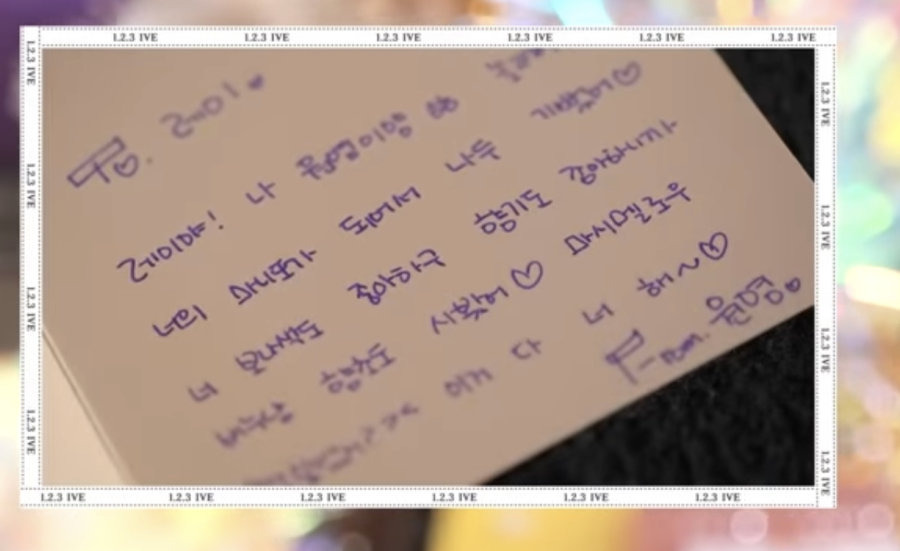 1.2.3 IVE 1.2.3 IVE 1.2.3 IVE 1.2.3 IVE 1.2.3 IVE 1.2.3 IVE
1.2.3 IVE
1.2.3 IVE
1.2.3 IVE
1.2.3 IVE
To. 레이.
레이야! 나 원영이양
너의 마니또가 되어서 나두 기뻤어♡
너 보라색도 좋아하구 향기도 좋아하니까
향초도 사봤어♡ 마시멜로우
이거 다 너 해~♡
From. 원영.
1.2.3 IVE
1.2.3 IVE
1.2.3 IVE
1.2.3 IVE
1.2.3 IVE 1.2.3 IVE 1.2.3 IVE 1.2.3 IVE 1.2.3 IVE 1.2.3 IVE